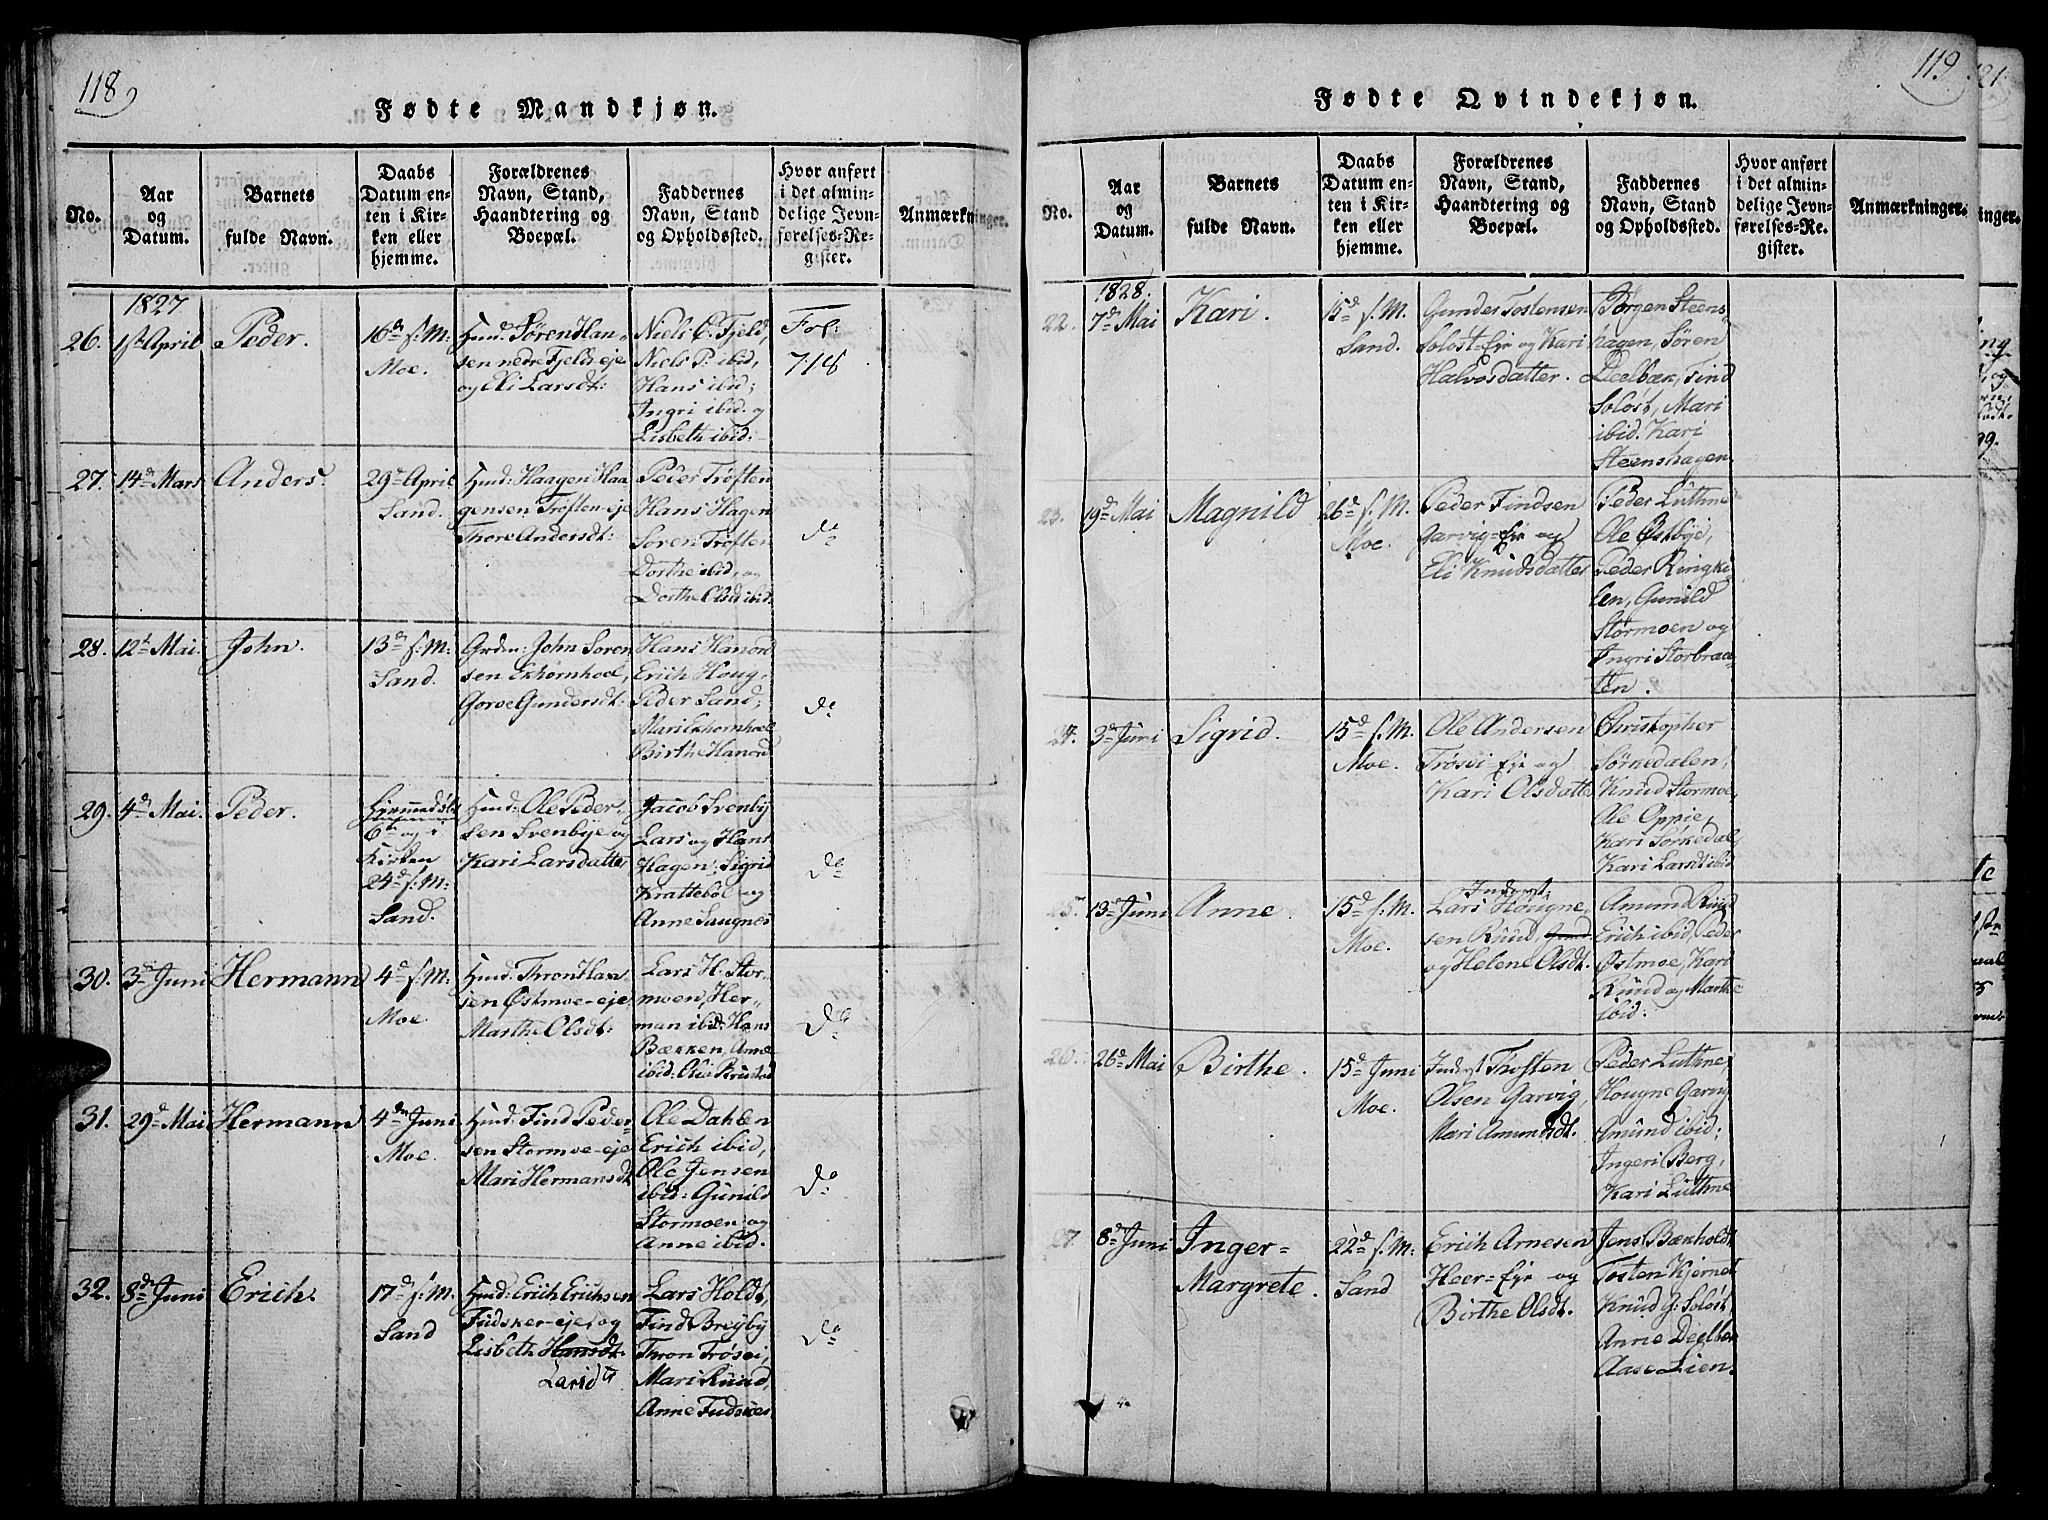 118
Fødte Mandkjøn.
No.
Aar
og
Datum.
Barnets
fulde Navn.
Daabs
Datum en-
ten i Kir-
ken eller
hjemme.
Forældrenes
Navn, Stand,
Haandtering og
Boepæl.
Faddernes
Navn, Stand
og Opholdssted.
Hvor anført
i det almin-
delige Jevn-
førelses-Re-
gister.
Anmærkninger.
1827
26.
1st April
Peder.
16de f: M.
Moe.
Hmd: Søren Han-
sen nedre Fjelds-eje
og Eli Larsdt:
Niels O. Fjeld,
Niels P: ibid,
Hans ibid;
Ingri ibid. og
Lisbeth ibid:
Fol:
718
27.
14de Mars
Anders.
29de April
Sand.
Hmd: Haagen Haa
gensen Trøften-eje
Thore Andersdt:
Peder Trøften
Hans Hagen
Søren Trøften
Dorthe ibid, og
Dorthe Olsd ibid.
do
28.
12te Mai.
John.
13de f: M:
Sand.
Grdm: John Søren
sen Ekhornhoel,
Gorve Gundersdt:
Hans Hanord
Erich Houg,
Peder Sand;
Mari Ekhornhoel
Birthe Hanord
do
29.
4de Mai.
Peder.
Hjemmedøbt
6te og i
Kirken
24de f: M:
Sand.
Hmd: Ole Peder-
sen Svenbye og
Kari Larsdatter
Jacob Svenby
Lars og Hans
Hagen; Sigrid
Krattebøl og
Anne Saugnes
do
30.
3de Juni
Hermann
4de f: M:
Moe.
Hmd: Thron Han
sen Østmoe-eje
Marthe Olsdt:
Lars H. Stor-
moen, Her-
man ibid: Hans
Bækken, Anne
ibid: Olia
do
31.
29de Mai
Hermann
4de Juni
Moe.
Hmd: Find Peder-
sen Stormoe-eje
Mari Hermansdt
Ole Dahlen
Erich ibid,
Ole Jensen
ibid: Gunild
Stormoen og
Anne ibid.
do
32.
8de Juni
Erich.
17de f: M.
Sand
Hmd: Erich Erichsen
Fudsker-eje, og
Lisbeth Hansdt.
Larsdtr
Lars Holdt,
Find Breyby
Thron Trøsei,
Mari Ruud,
Anne Fudskes
do
119.
Fødte Qvindekjøn.
No.
Aar
og
Datum.
Barnets
fulde Navn.
Daabs
Datum en-
ten i Kir-
ken eller
hjemme.
Forældrenes
Navn, Stand,
Haandtering og
Boepæl.
Faddernes
Navn, Stand
og Opholdssted.
Hvor anført
i det almin-
delige Jevn-
førelses-Re-
gister.
Anmærkninger.
1828.
22.
7de Mai
Kari.
15de f. M.
Sand.
Gunder Tostensen
Soløst-Eje og Kari
Halvosdatter.
Børgen Steens-
hagen, Søren
Deelbæk, Find
Soløst, Mari
ibid. Kari
Steenshagen.
23.
19de Mai
Magnild
26de f. M.
Moe.
Peder Findsen
Garvig-Eje og
Eli Knudsdatter
Peder Luthne
Ole Østbye,
Peder Ringki-
len, Gunild
Stormoen og
Ingri Storbraa-
ten.
24.
3de Juni
Sigrid.
15de f. M.
Moe.
Ole Andersen
Trøsei-Eje og
Kari Olsdatter
Christopher
Sørkedalen,
Knud Stormoe,
Ole Oppie,
Kari Sørkedal,
Kari Larsdt ibid
25.
13de Juni
Anne.
15de f: M.
Moe.
Inderst:
Lars Hougne,
sen Ruud,
og Helene Olsdt.
Amund Ruud
Erich ibid, Peder
Østmoe, Kari
Ruud og Marthe
ibid:
26.
26de Mai
Birthe.
15de Juni
Moe.
Inderst Trøften
Olsen Garvig,
Mari Amundsdt.
Peder Luthne,
Hougne Garvig
Amund ibid;
Ingeri Berg,
Kari Luthne
27.
8de Juni
Inger-
Margrete.
22de f. M:
Sand
Erich Arnesen
Heer-Eje og
Birthe Olsdt.
Jens Bækholdt,
Tosten Kjernet
Knud G: Soløst,
Anne Deelbek
Aase Lien.